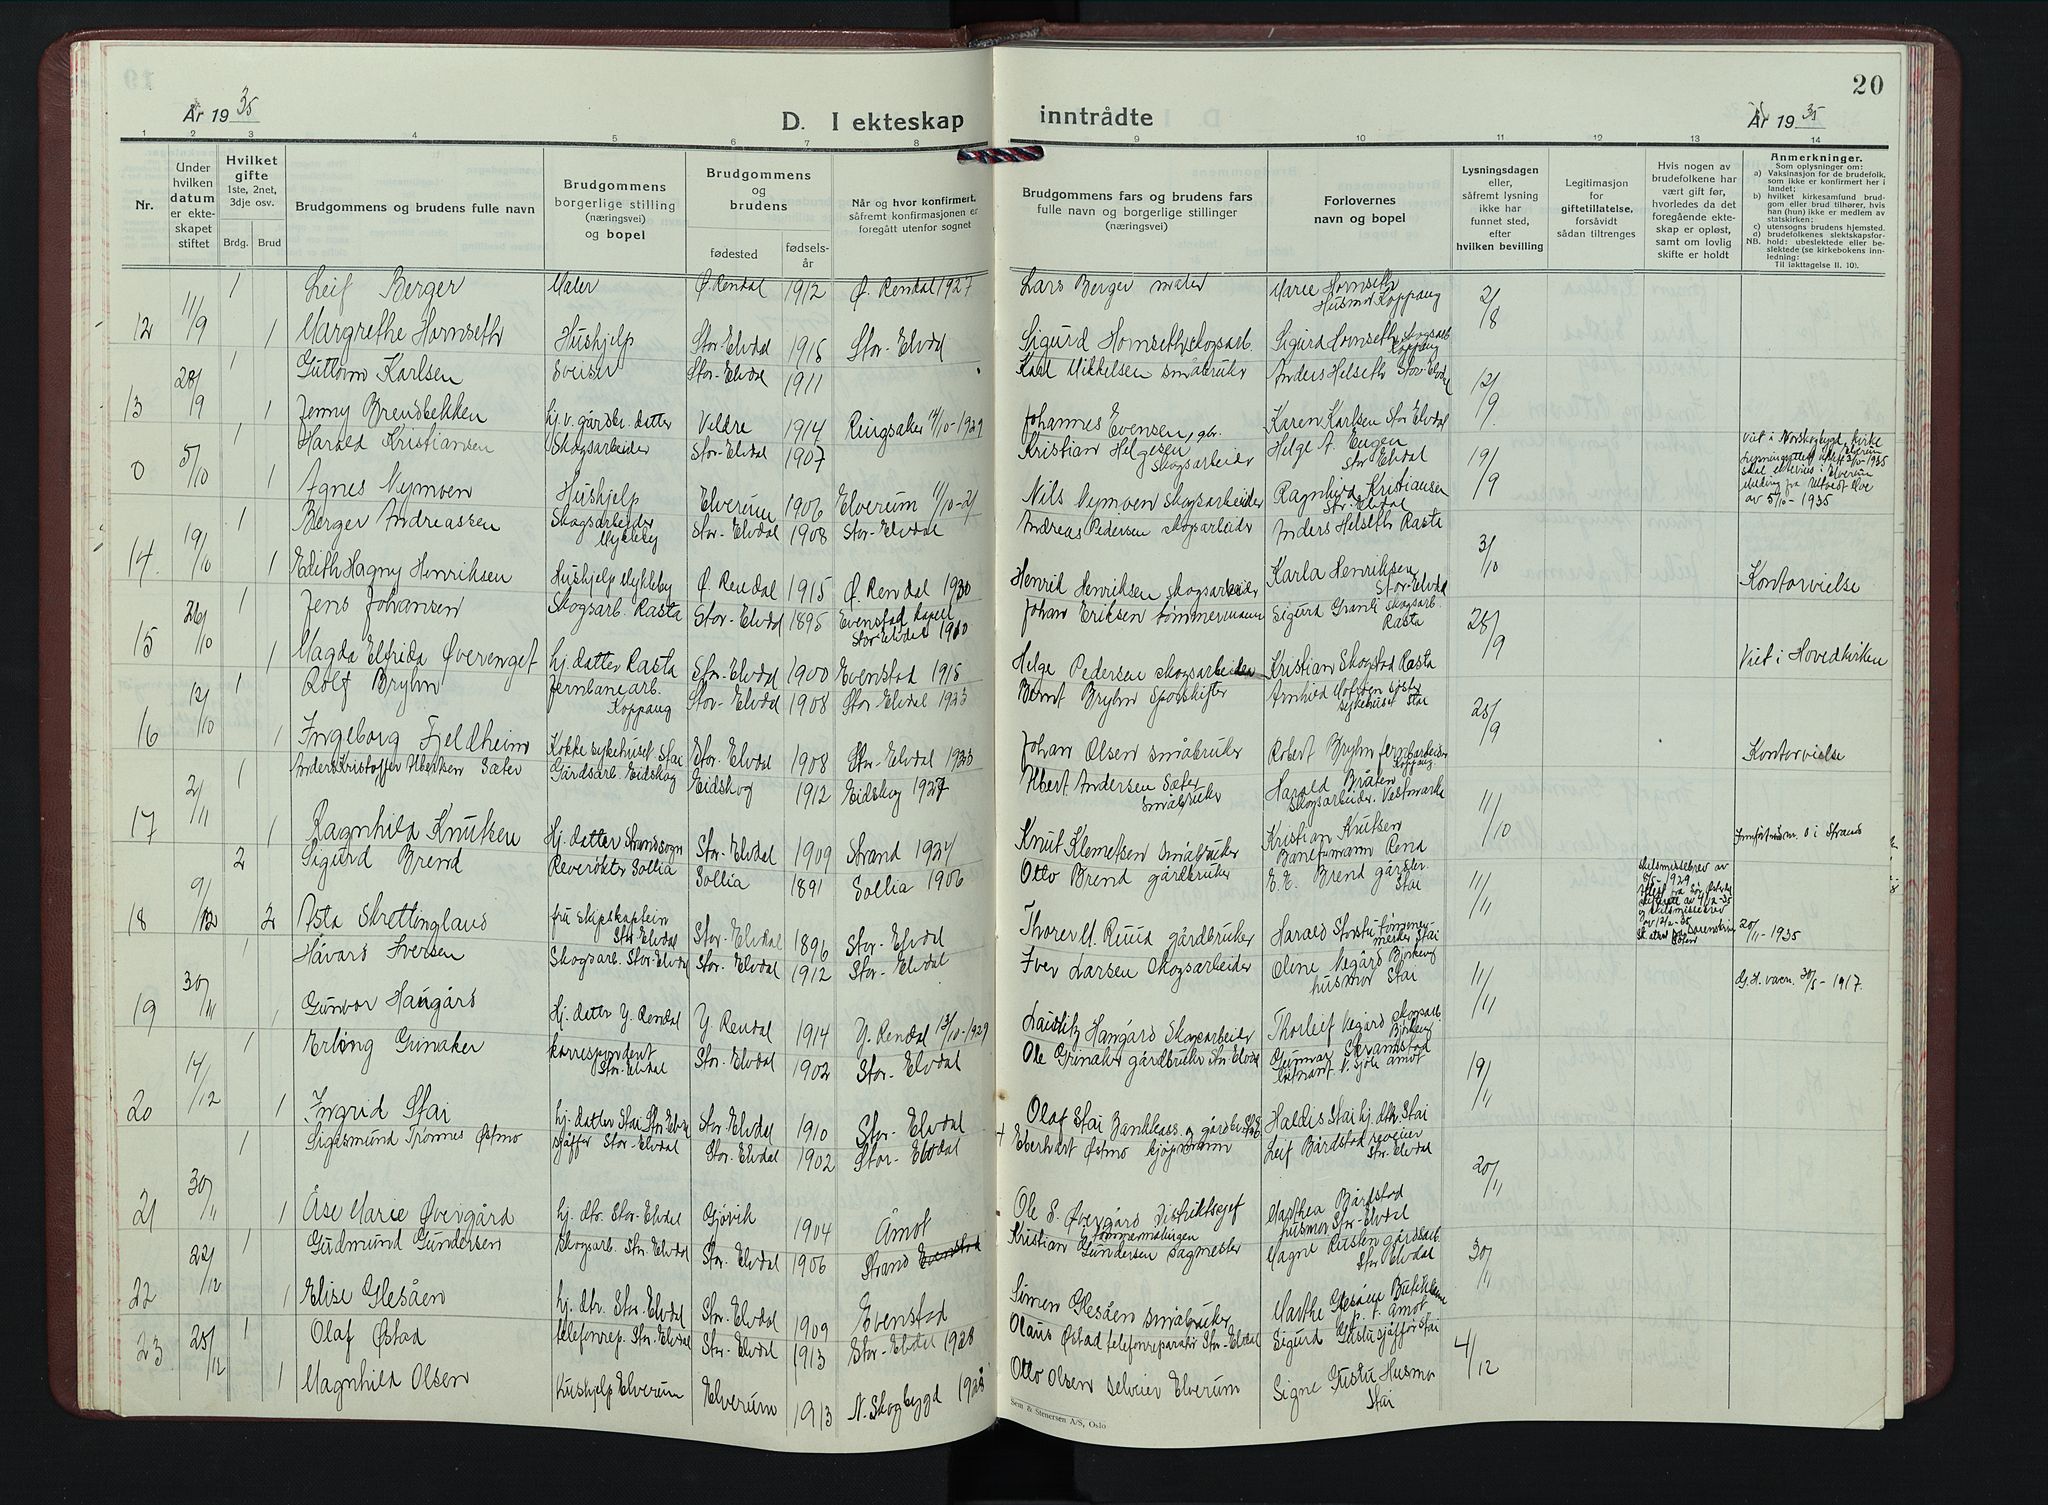 År 1935
D. I ekteskap
1 2 3 4 5 6 7 8
Nr.
Under hvilken datum er ekteskapet stiftet
Hvilket gifte 1ste, 2net, 3dje osv.
Brdg. Brud
Brudgommens og brudens fulle navn
Brudgommens borgerlige stilling (næringsvei) og bopel
Brudgommens og brudens
fødested fødselsår
Når og hvor konfirmert, såfremt konfirmasjonen er foregått utenfor sognet
1 Leif Berger Maler Ø. Rendal 1912 Ø. Rendal 1927
12 11/9 1 Margrethe Hornseth Hushjelp Stor-Elvdal 1915 Stor-Elvdal
1 Guttorm Karlsen Sveiser Stor-Elvdal 1911
13 28/9 1 Jenny Brendbekken hj. v. gårdbr. datter Veldre 1914 Ringsaker 14/10-1929
1 Harald Kristiansen Skogsarbeider Stor-Elvdal 1907
0 5/10 1 Agnes Nymoen Hushjelp Elverum 1906 Elverum 11/10-21
1 Berger Andreassen Skogsarbeider Mykleby Stor-Elvdal 1908 Stor-Elvdal
14. 19/10 1 Edith Hagny Henriksen Hushjelp Mykleby Ø. Rendal 1915 Ø. Rendal 1930
1 Jens Johansen Skogsarb. Rasta Stor-Elvdal 1895 Evenstad kapell Stor-Elvdal 1910
15 26/10 1 Magda Elfrida Øverenget hj. datter Rasta Stor-Elvdal 1900 Evenstad 1915
1 Rolf Bryhn Jernbanearb. Koppang Stor-Elvdal 1908 Stor-Elvdal 1923
16 12/10 1 Ingeborg Fjeldheim Kokke sykehuset Stai Stor-Elvdal 1908 Stor-Elvdal 1923
1 Anders Kristoffer Albertsen Sæter Gårdsarb. Eidskog Eidskog 1912 Eidskog 1927
17 2/11 1 Ragnhild Knutsen Hj. datter Strandsogn Stor-Elvdal 1909 Strand 1924
2 Sigurd Brend Reverøkter Sollia Sollia 1891 Sollia 1906
18 9/12 2 Asta Skrettinglaus fru skipskaptein Stor-Elvdal Stor-Elvdal 1896 Stor-Elvdal
1 Håvard Iversen Skogsarb. Stor-Elvdal Stor-Elvdal 1912 Stor-Elvdal
19 30/11 1 Gunvor Haugård Hj. datter Y. Rendal Y. Rendal 1914 Y. Rendal 13/10-1929
1 Erling Grinaker korrespondent Stor-Elvdal Stor-Elvdal 1902 Stor-Elvdal
20 14/12 1 Ingrid Stai hj. datter Stai Stor-Elvdal Stor-Elvdal 1910 Stor-Elvdal
1 Sigismund Trønnes Østmo sjåffør Stor-Elvdal Stor-Elvdal 1902 Stor-Elvdal
21 30/11 1 Åse Marie Øvergård hj. dtr. Stor-Elvdal Gjøvik 1904 Åmot
1 Gudmund Gundersen Skogsarb. Stor-Elvdal Stor-Elvdal 1906 Strand Evenstad
22 22/12 1 Elise Glesåen hj. dtr. Stor-Elvdal Stor-Elvdal 1909 Evenstad
1 Olaf Østad telefonrep. Stor-Elvdal Stor-Elvdal 1913 Stor-Elvdal 1928
23 25/12 1 Magnhild Olsen Hushjelp Elverum Elverum 1913 N. Skogbygd 1928
20
inntrådte
År 1935
9 10 11 12 13 14
Brudgommens fars og brudens fars fulle navn og borgerlige stillinger (næringsvei)
Forlovernes navn og bopel
Lysningsdagen eller, såfremt lysning ikke har funnet sted, efter hvilken bevilling
Legitimasjon for giftetillatelse, forsåvidt sådan tiltrenges
Hvis nogen av brudefolkene har vært gift før, hvorledes da det foregående ekteskap er opløst, samt om lovlig skifte er holdt
Anmerkninger.
Som oplysninger om:
a) Vaksinasjon for de brudefolk, som ikke er konfirmert her i landet;
b) hvilket kirkesamfund brudgom eller brud tilhører, hvis han (hun) ikke er medlem av statskirken;
c) utensogns brudens hjemsted.
d) brudefolkenes slektskapsforhold: ubeslektede eller beslektede (se kirkebokens innledning:
NB. Til iakttagelse II. 10).
Lars Berger maler Marie Hornseth Husmor Koppang 2/8
Sigurd Hornseth skogsarb. Sigurd Hornseth skogsarb. Koppang
Karl Mikkelsen småbruker Anders Helseth Stor-Elvdal 12/9
Johannes Evensen, gbr. Karen Karlsen Stor Elvdal
Kristian Helgesen Skogsarbeider Helge A. Engen Stor Elvdal 19/9 Viet i Nordskogbygd kirke Elverum
av 5/10-1935
Nils Nymoen Skogsarbeider Ragnhild Kristiansen Stor-Elvdal
Andreas Pedersen skogsarbeider Anders Helseth Rasta 3/10
Henrik Henriksen skogsarbeider Karla Henriksen Stor-Elvdal Kontorvielse
Johan Eriksen tømmermann Sigurd Granli skogsarb. Rasta 28/9
Helge Pedersen skogsarbeider Kristian Skogstad Rasta Viet i Hovedkirken
Bernt Bryhn Sporskifter Arnhild Mofoen søster sykehuset Stai 28/9
Johan Olsen småbruker Robert Bryhn jernb.arbeider Koppang Kontorvielse
Albert Andersen Sæter Småbruker Harald Bråten Skogsarbeider. Vestmarka 11/10
Knut Klemetsen småbruker Kristian Knutsen Banefomann Rena Innført i Strand
Otto Brend gårdbruker E. E. Brend gårdeier Stai 11/11 Skilsmissebrev av 5/5-1929
Thorer M. Ruud gårdbruker Harald Stai tømmermester Stai 20/11-1935
Iver Larsen Skogsarbeider Oline Negård Bjørkeng husmor Stai 11/11 G.H. vacc. 30/5-1917.
Lauritz Haugård Skogsarbeider Thorleif Negård skogsarb. Bjørkeng
Ole Grinaker gårdbruker Stor Elvdal Gunnar Strandstad løitnant V. Sjøli Åmot 19/11
Olaf Stai Bankkass. og gårdbr. Haldis Stai hj. dtr. Stai
Eberhart Østmo kjøpmann Leif Bårdstad reveeier Stor-Elvdal 20/11
Ole E. Øvergård Distriktssjef tømmermålingen Marthea Bårdstad husmor Stor-Elvdal
Kristian Gundersen sagmester Magne Rusten gårdsarb. Stor Elvdal 30/11
Simen Glesåen småbruker Marthe Glesåen p. t. Åmot
Olaus Østad telefonreparatør Stor-Elvdal Sigurd Gustu sjåffør Stai 4/12
Otto Olsen selveier Elverum Signe Gustu Husmor Stai
Sem & Stenersen A/S, Oslo